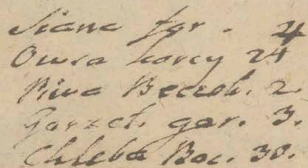 Siana for. 4
Owsa korcy 24
Piwa Beczek. 2.
Gorzeł. gar. 3.
Chleba Boc. 30.